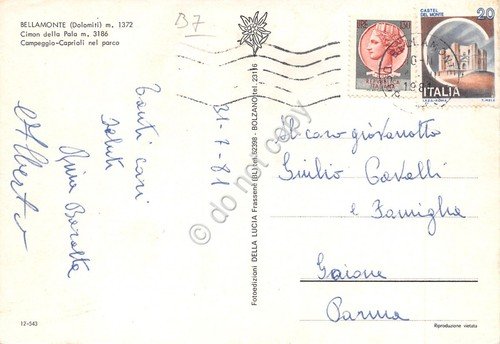 BELLAMONTE (Dolomiti) m. 1372
Cimon della Pala m. 3186
Campeggio-Caprioli nel parco
B7
Tanti cari
saluti
Alberto
31-7-81
Fotoedizioni DELLA LUCIA Frassenè (BL) tel. 52398 - BOLZANO tel. 23116
do not copy
CASTEL
DEL MONTE
20
ITALIA
Al caro giovanotto
Giulio Cavalli
e Famiglia
Gaione
Parma
12-543
Riproduzione vietata